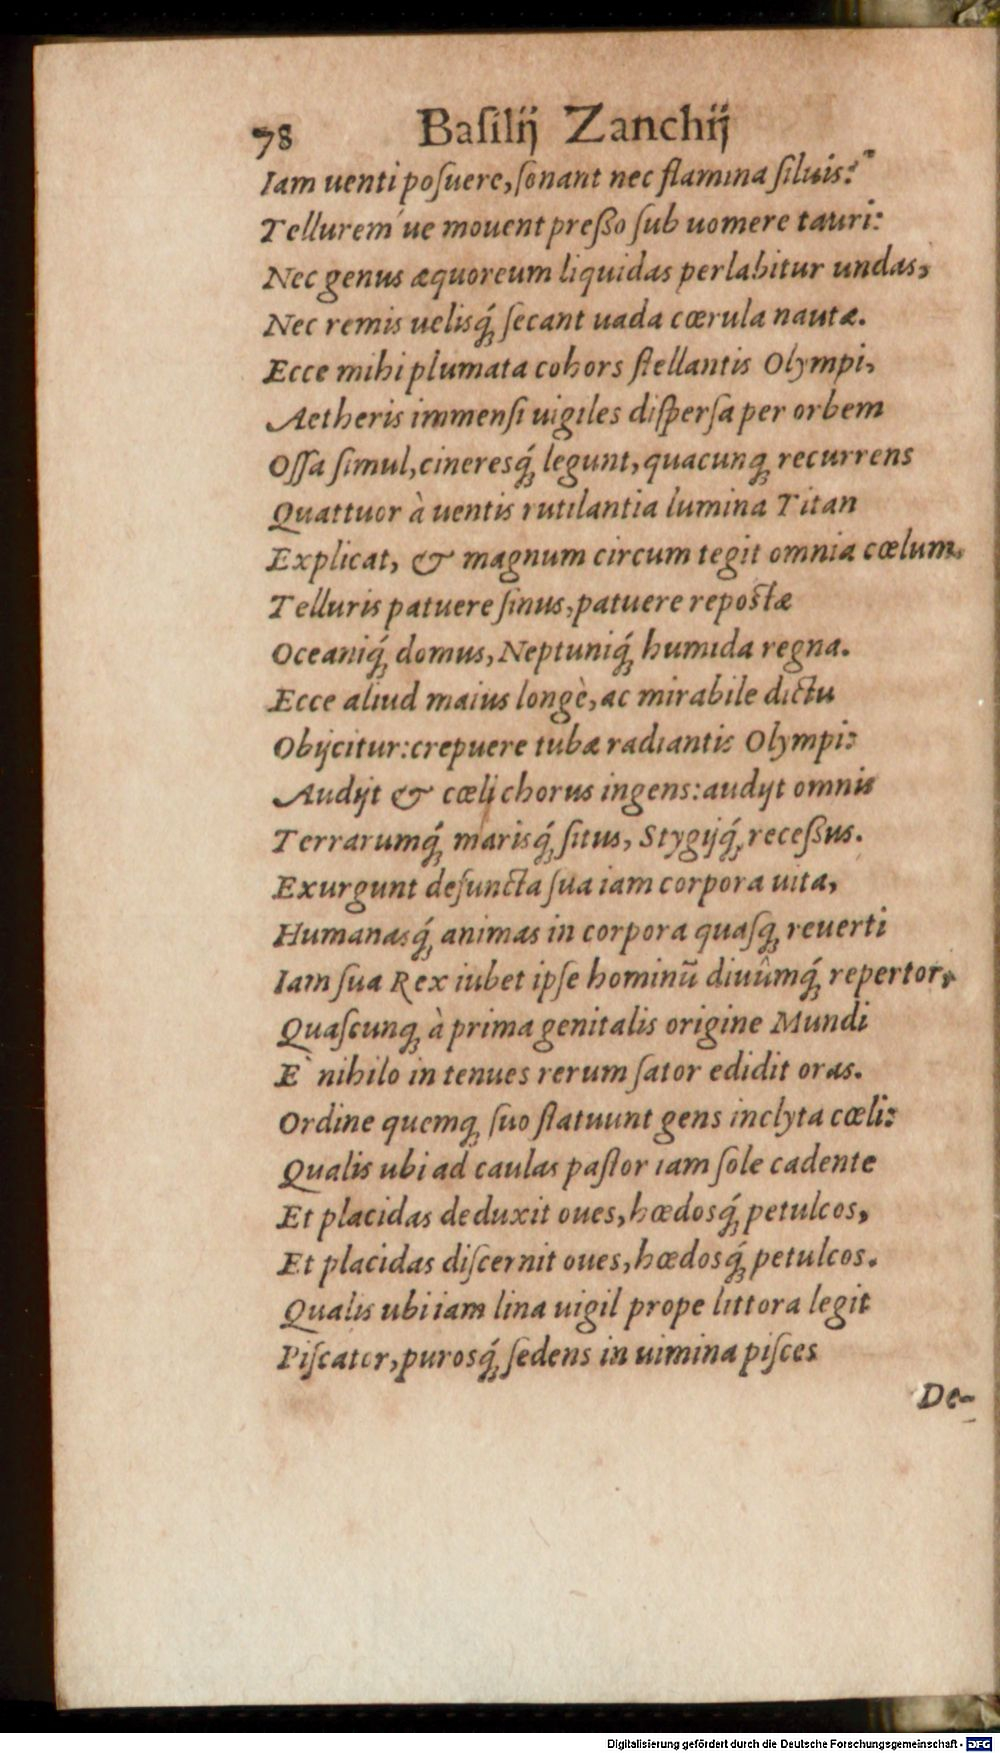 78 Baſilij Zanchij
Iam uenti poſuere, ſonant nec flamina ſiluis:
Tellurem´ue mouent preßo ſub uomere tauri:
Nec genus æquoreum liquidas perlabitur undas,
Nec remis uelisq́; ſecant uada cœrula nautæ.
Ecce mihi plumata cohors ſtellantis Olympi,
Aetheris immenſi uigiles diſperſa per orbem
Oſſa ſimul, cineresq́; legunt, quacunq; recurrens
Quattuor à uentis rutilantia lumina Titan
Explicat, & magnum circum tegit omnia cœlum.
Telluris patuere ſinus, patuere repostæ
Oceaniq́; domus, Neptuniq́; humida regna.
Ecce aliud maius longè, ac mirabile dictu
Obijcitur: crepuere tubæ radiantis Olympi:
Audijt & cœli chorus ingens: audijt omnis
Terrarumq́; marisq́; ſitus, Stygijq́; receßus.
Exurgunt defuncta ſua iam corpora uita,
Humanasq́; animas in corpora quaſq; reuerti
Iam ſua Rex iubet ipſe hominū diuûmq́; repertor,
Quaſcunq; à prima genitalis origine Mundi
E` nihilo in tenues rerum ſator edidit oras.
Ordine quemq; ſuo ſtatuunt gens inclyta cœli:
Qualis ubi ad caulas paſtor iam ſole cadente
Et placidas deduxit oues, hœdosq́; petulcos,
Et placidas diſcernit oues, hœdosq́; petulcos.
Qualis ubi iam lina uigil prope littora legit
Piſcator, purosq́; ſedens in uimina piſces
De-
Digitalisierung gefördert durch die Deutsche Forschungsgemeinschaft - DFG